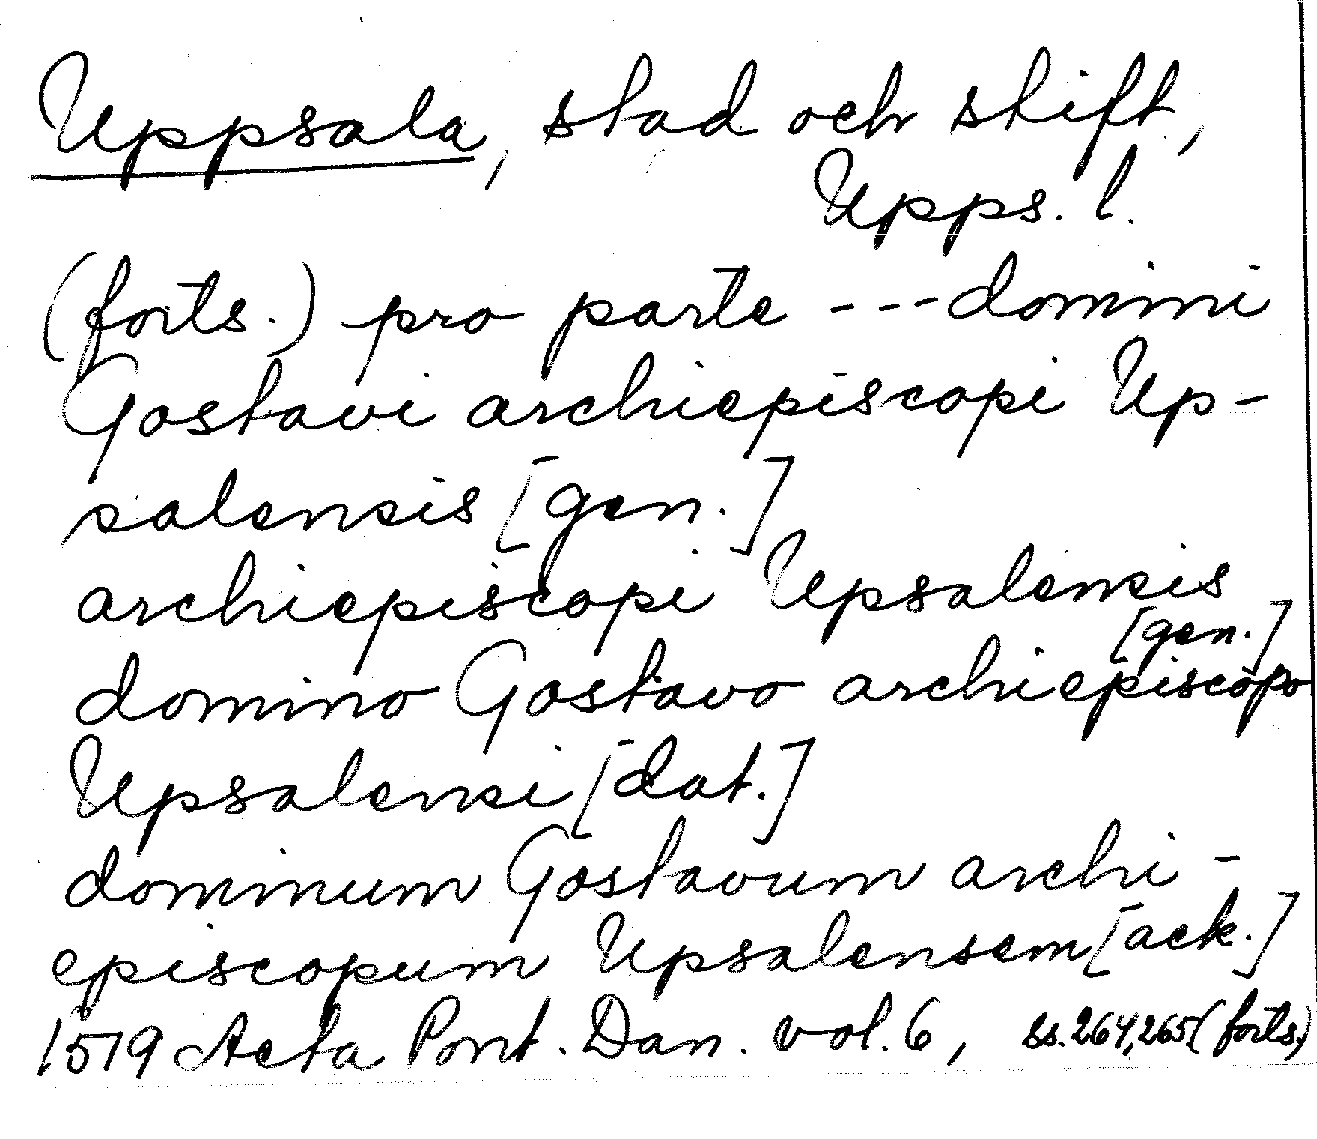 Uppsala, stad och stift,
Upps. l.
(forts.) pro parte --- domini
Gostavi archiepiscopi Up-
salensis [gen.]
archiepiscopi Upsalensis
[gen.]
domino Gostavo archiepiscopo
Upsalensi [dat.]
dominum Gostavum archi-
episcopum Upsalensem [ack.]
1519 Acta Pont. Dan. vol. 6, ss. 264, 265 (forts.)